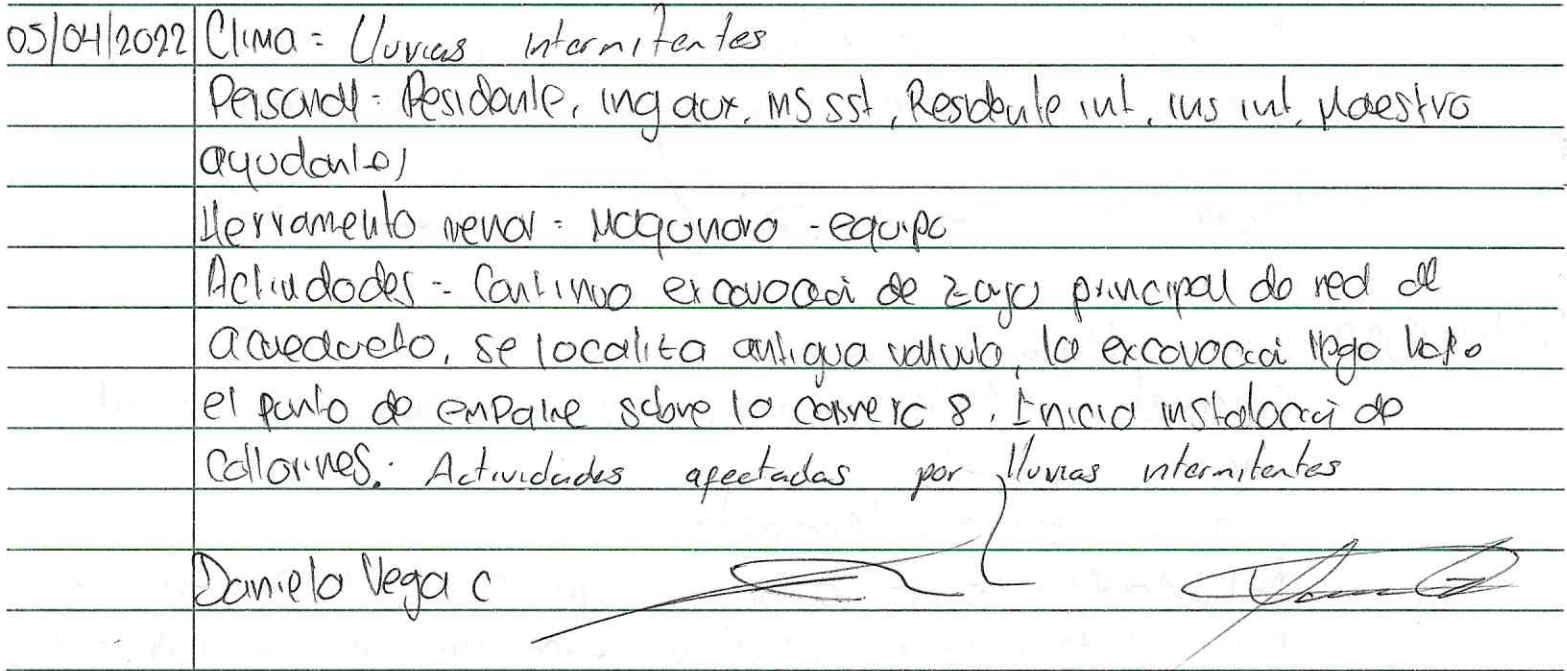 05/04/2022 Clima = Lluvias intermitentes
Personal = Residente, ing aux, ms sst, Residente int, ins int, Maestro
ayudantes
Herramienta menor = Maquinara - equipo
Actividades = Continuo excavacci de zanja principal de red de
acueducto, se localiza antigua valvula, la excavacci llego hata
el punto de empalme sobre la carrera 8. Inicio instalacci de
Collarines. Actividades afectadas por lluvias intermitentes
Daniela Vega C